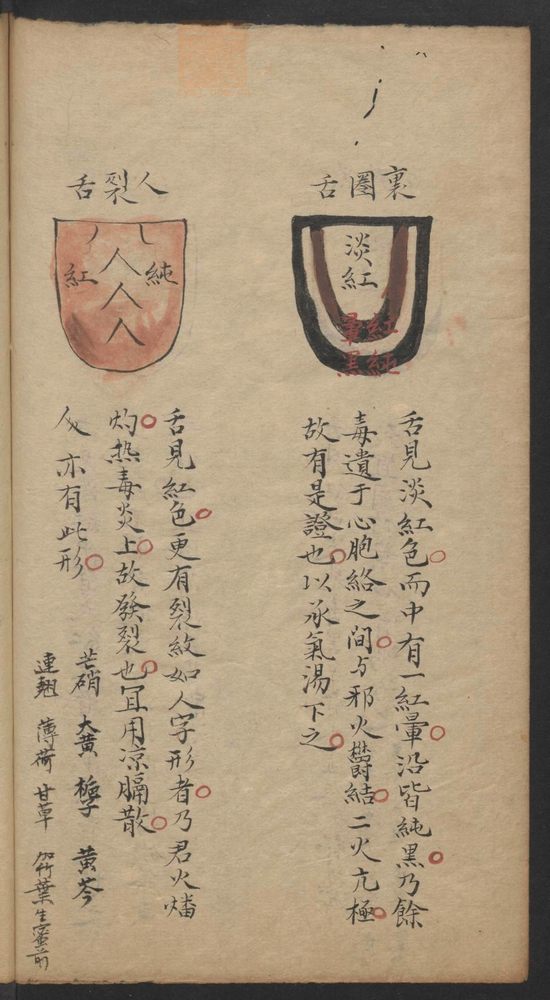 裏圈舌
淡紅
紅暈
純黑
舌見淡紅色而中有一紅暈沿皆純黑乃餘
毒遺于心胞絡之間与邪火欝結二火亢極
故有是證也以承氣湯下之
人裂舌
純紅
人人人
舌見紅色更有裂紋如人字形者乃君火燔
灼热毒炎上故發裂也宜用凉膈散
亦有此形
芒硝 大黄 梔子 黄芩
連翹 薄荷 甘草 加竹葉生蜜前